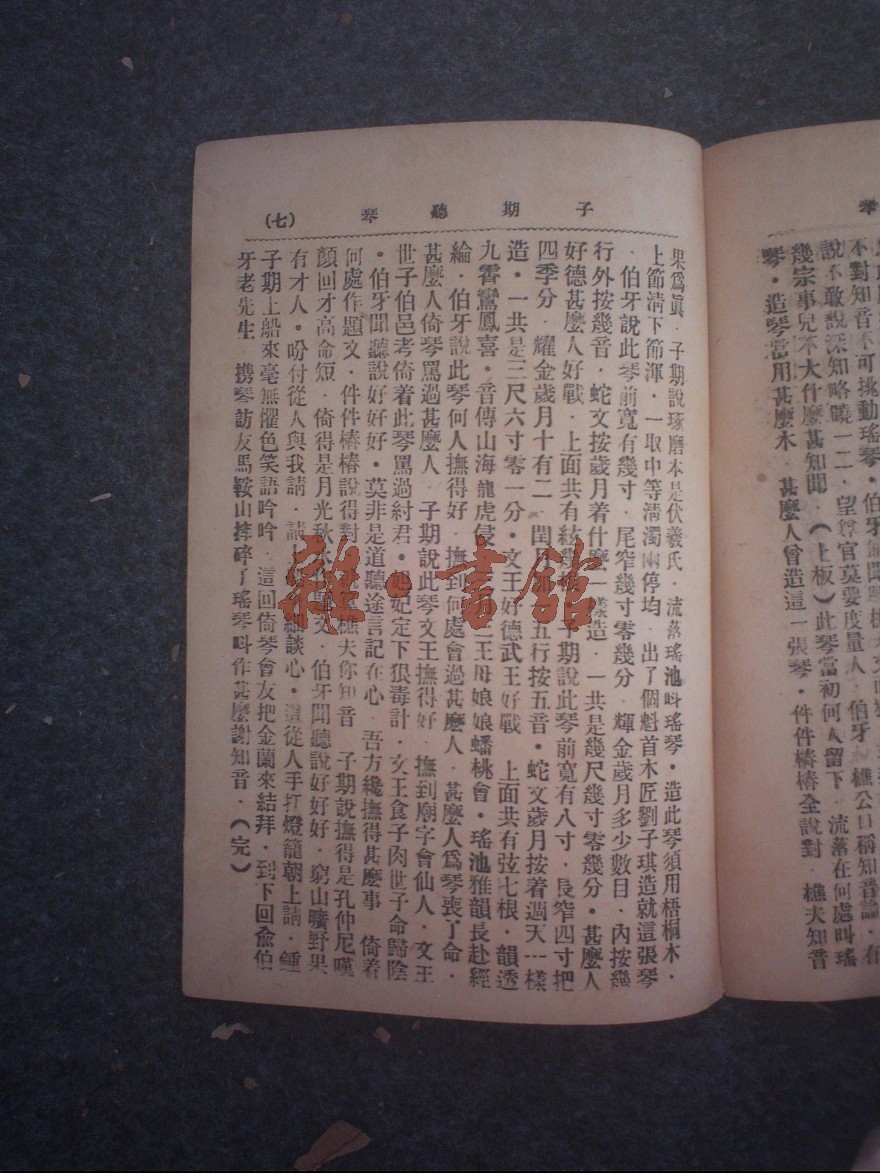 琴
不對知音不可挑動瑤琴．伯牙
說不敢說深知略曉一二．望尊官莫要度量人．伯牙 樵公口稱知音論．有
幾宗事兒不大什麼甚知聞．(上板)此琴當初何人留下．流落在何處叫瑤
琴．造琴當用甚麼木．甚麼人曾造這一張琴．件件樁樁全說對．樵夫知音
子期聽琴
(七)
果爲眞．子期說琢磨本是伏羲氏．流落瑤池叫瑤琴．造此琴須用梧桐木．
上節淸下節渾．一取中等淸濁兩停均．出了個魁首木匠劉子琪造就這張琴
．伯牙說此琴前寬有幾寸．尾窄幾寸零幾分．輝金歲月多少數目．內按幾
行外按幾音．蛇文按歲月着什麼一樣造．一共是幾尺幾寸零幾分．甚麼人
好德甚麼人好戰．上面共有絃幾 子期說此琴前寬有八寸．長窄四寸把
四季分．耀金歲月十有二．閏月 五行按五音．蛇文歲月按着週天一樣
造．一共是三尺六寸零一分．文王好德武王好戰 上面共有弦七根．韻透
九霄鸞鳳喜．音傳山海龍虎侵 王母娘娘蟠桃會．瑤池雅韻長赴經
綸．伯牙說此琴何人撫得好．撫到何處會過甚麼人．甚麼人爲琴喪了命．
甚麼人倚琴罵過甚麼人．子期說此琴文王撫得好．撫到廟宇會仙人．文王
世子伯邑考倚着此琴罵過紂君．妲妃定下狠毒計．文王食子肉世子命歸陰
．伯牙聞聽說好好好．莫非是道聽途言記在心．吾方纔撫得甚麼事 倚着
何處作題文．件件樁樁說得對 樵夫你知音 子期說撫得是孔仲尼嘆
顏回才高命短．倚得是月光秋水作題文．伯牙聞聽說好好好．窮山曠野果
有才人．吩付從人與我請．請上 細談心．這從人手打燈籠朝上請．鍾
子期上船來毫無懼色笑語吟吟．這回倚琴會友把金蘭來結拜．到下回兪伯
牙老先生．携琴訪友馬鞍山摔碎了瑤琴叫作甚麼謝知音．(完)
雜·書館